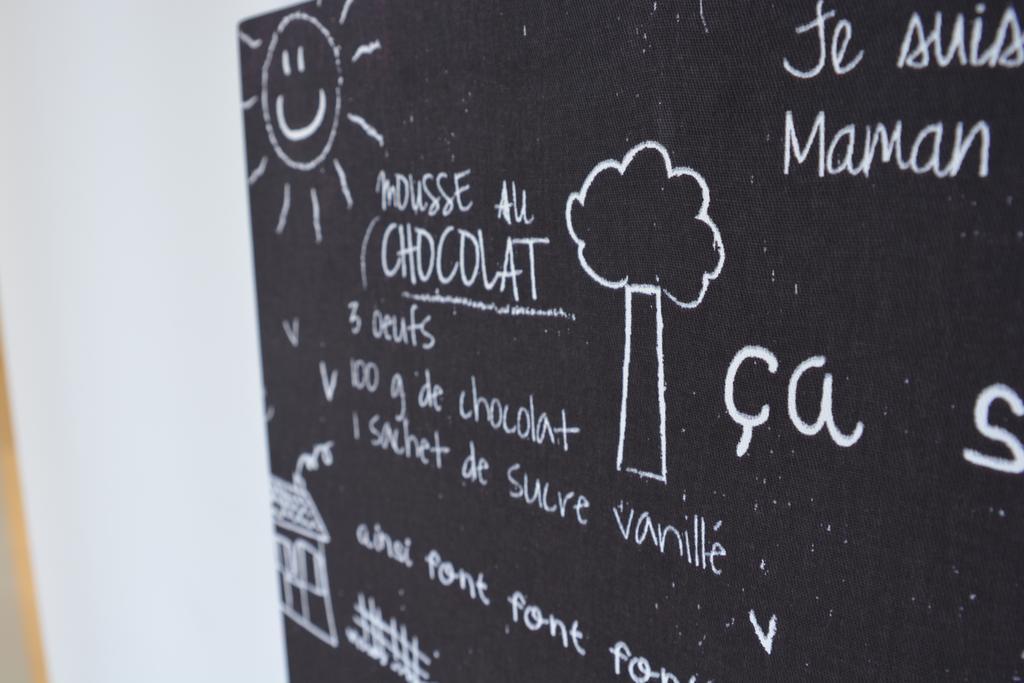 Je suis
Maman
MOUSSE AU
CHOCOLAT
3 oeufs
100 g de chocolat
1 sachet de sucre vanillé
ça
ainsi font font